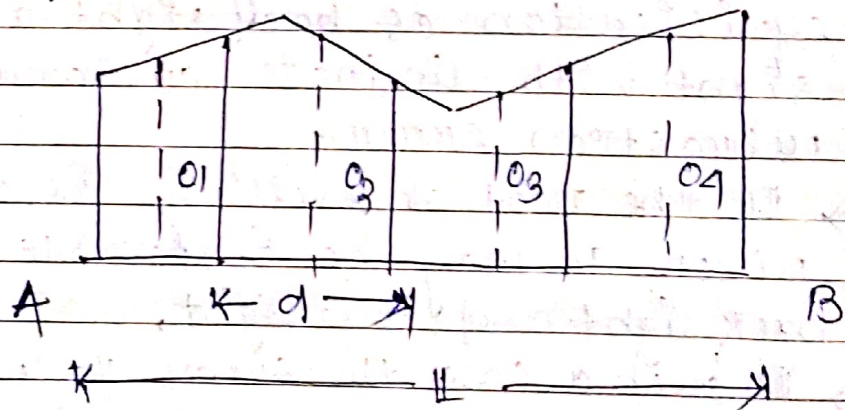 O1 O2 O3 O4
A d B
L